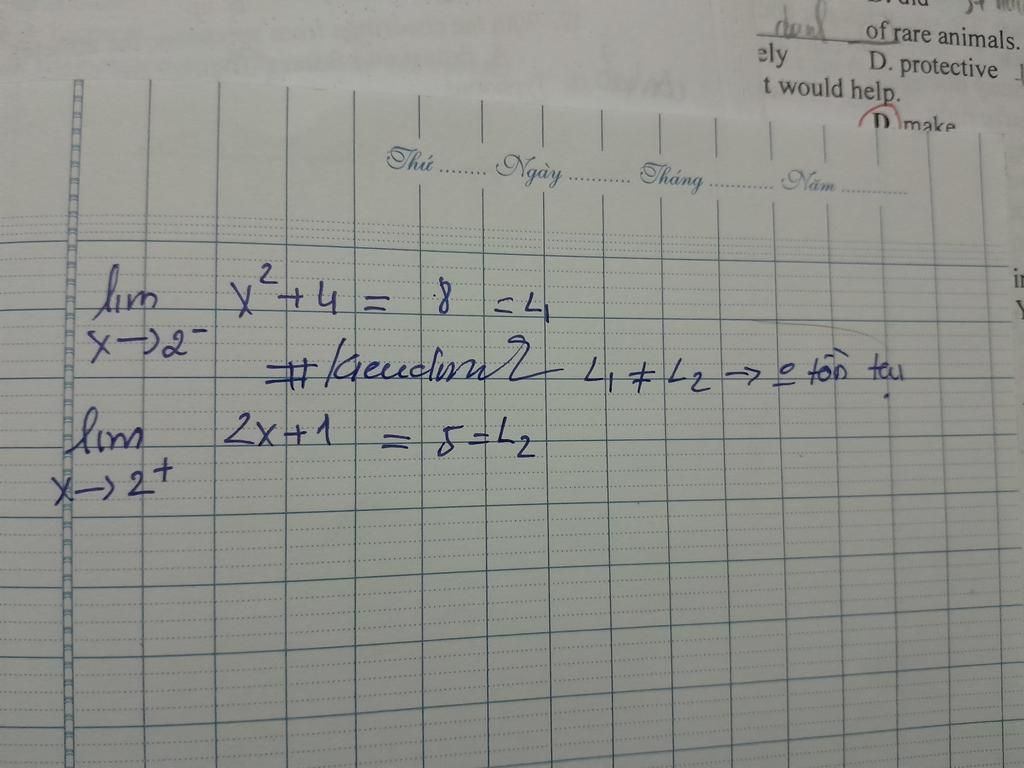 of rare animals.
ely D. protective
t would help.
D make
Thứ ........ Ngày ........... Tháng ........... Năm ...........
lim x² + 4 = 8 = L₁
x → 2⁻
L₁ ≠ L₂ → o tồn tại
lim 2x + 1 = 5 = L₂
x → 2⁺